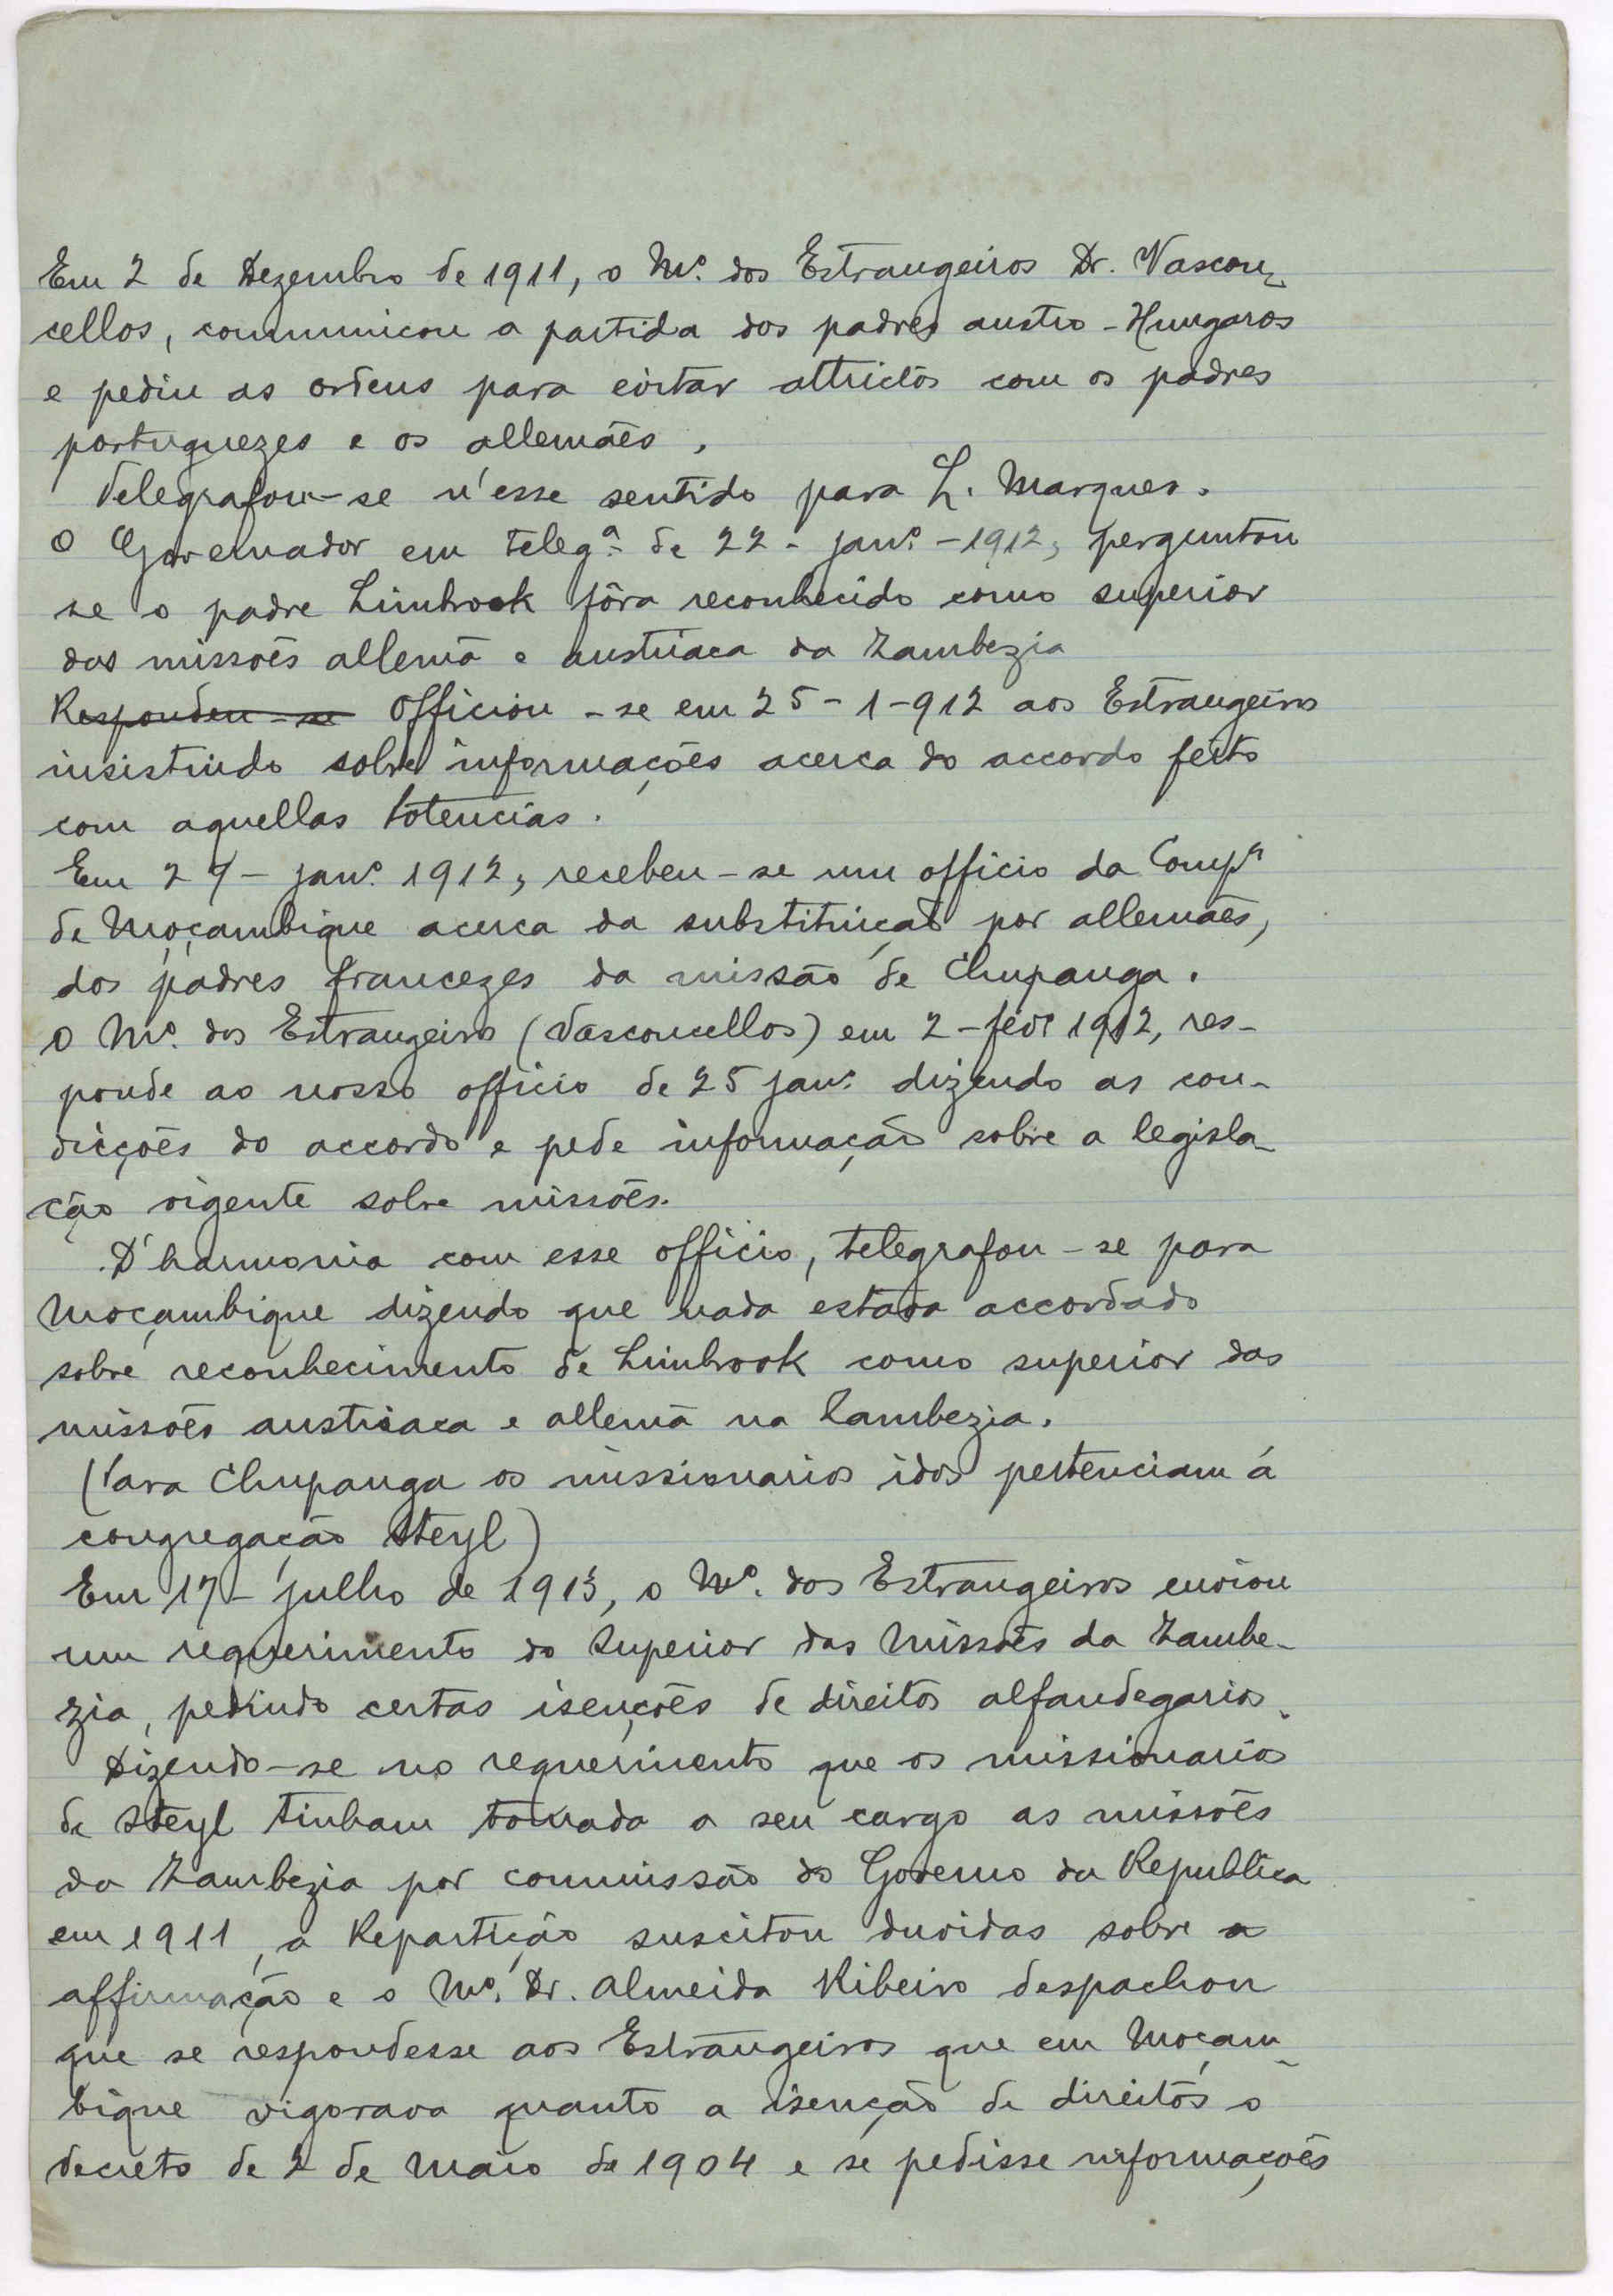 Em 2 de Dezembro de 1911, o Mº. dos Estrangeiros Dr. Vascon-
cellos, communicou a partida dos padres austro-Hungaros
e pediu as ordens para evitar attrictos com os padres
portuguezes e os allemães.
Telegrafou-se n'esse sentido para L. Marques.
O Governador em telegª. de 22-janº.-1912, perguntou
se o padre Limbrock fôra reconhecido como superior
das missões allemã e austriaca da Zambezia
Respondeu-se Officiou-se em 25-1-912 aos Estrangeiros
insistindo sobre informações acerca do accordo feito
com aquellas Potencias.
Em 27-janº. 1912, recebeu-se um officio da Compª
de Moçambique acerca da substituição por allemães,
dos padres francezes da missão de Chupanga.
O Mº. dos Estrangeiros (Vasconcellos) em 2-fevº 1912, res-
ponde ao nosso officio de 25 janº. dizendo as con-
dicções do accordo e pede informação sobre a legisla-
ção vigente sobre missões.
D'harmonia com esse officio, telegrafou-se para
Moçambique dizendo que nada estava accordado
sobre reconhecimento de Limbrock como superior das
missões austriaca e allemã na Zambezia.
(Para Chupanga os missionarios idos pertenciam á
congregação Steyl)
Em 17-julho de 1913, o Mº. dos Estrangeiros enviou
um requerimento do Superior das Missões da Zambe-
zia, pedindo certas isenções de direitos alfandegarios.
Dizendo-se no requerimento que os missionarios
de Steyl tinham tomado a seu cargo as missões
da Zambezia por commissão do Governo da Republica
em 1911, a Repartição suscitou duvidas sobre a
affirmação e o Mº. Dr. Almeida Ribeiro despachou
que se respondesse aos Estrangeiros que em Moçam-
bique vigorava quanto a isenção de direitos o
decreto de 2 de Maio de 1904 e se pedisse informações